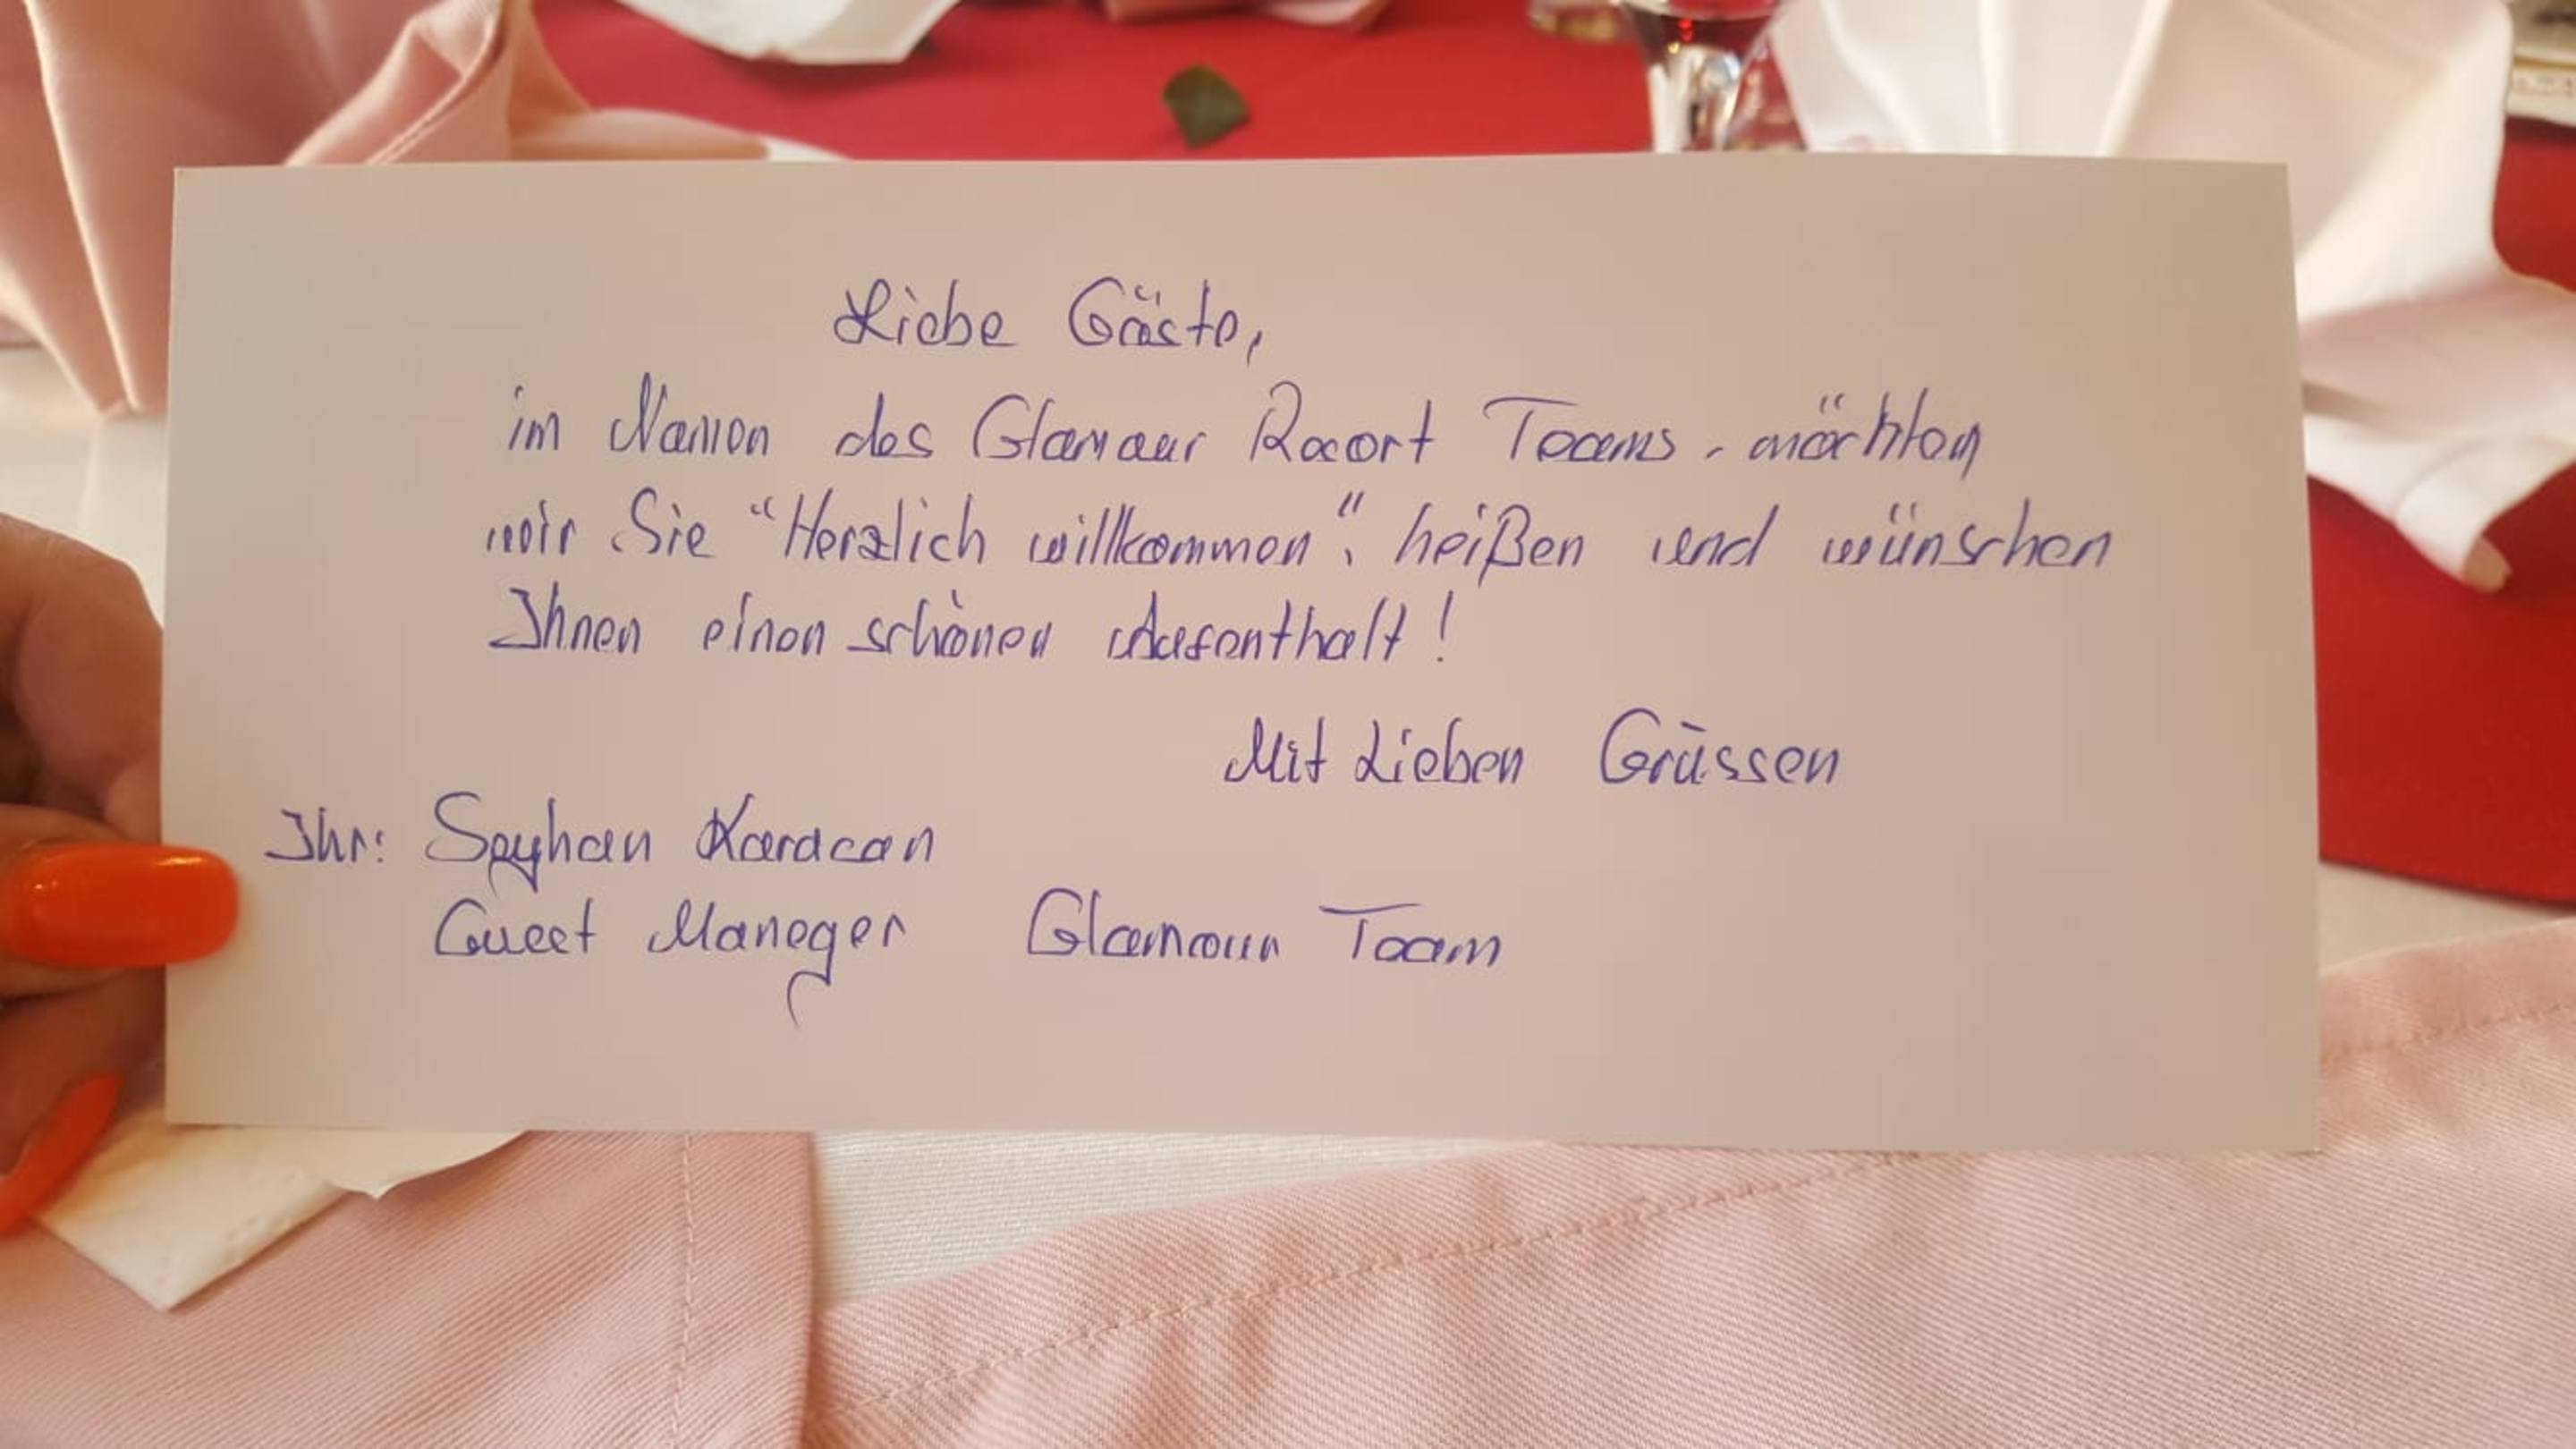 Liebe Gäste,
im Namen des Glamour Resort Teams, möchten
wir Sie "Herzlich willkommen", heißen und wünschen
Ihnen einen schönen Aufenthalt!
Mit Lieben Grüssen
Ihr: Seyhan Karacan
Guest Maneger Glamour Team